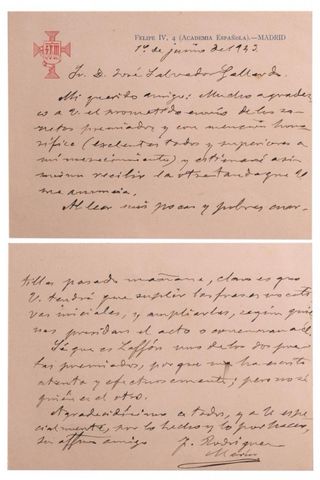 FELIPE IV, 4 (ACADEMIA ESPAÑOLA).—MADRID
1º de junio de 1943.
Sr. D. José Salvador Gallardo.
Mi querido amigo: Mucho agradez-
co a V. el prometido envío de los so-
netos premiados, y con mención hono-
rífica (excelentes todos y superiores a
mi merecimiento) y estimaré asi-
mismo recibir la otra tanda que V.
me anuncia.
Al leer mis pocas y pobres cuar-
tillas pasado mañana, claro es que
V. tendrá que suplir las frases vocati-
vas iniciales, y ampliarlas, según quie-
nes presidan el acto o concurran a él.
Sé que es Laffón uno de los dos poe-
tas premiados, porque me ha escrito
atenta y efectuosamente; pero no sé
quién es el otro.
Agradecidísimo a todos, y a V. espe-
cialmente, por lo hecho y lo por hacer,
su affmo amigo
F. Rodríguez
Marín